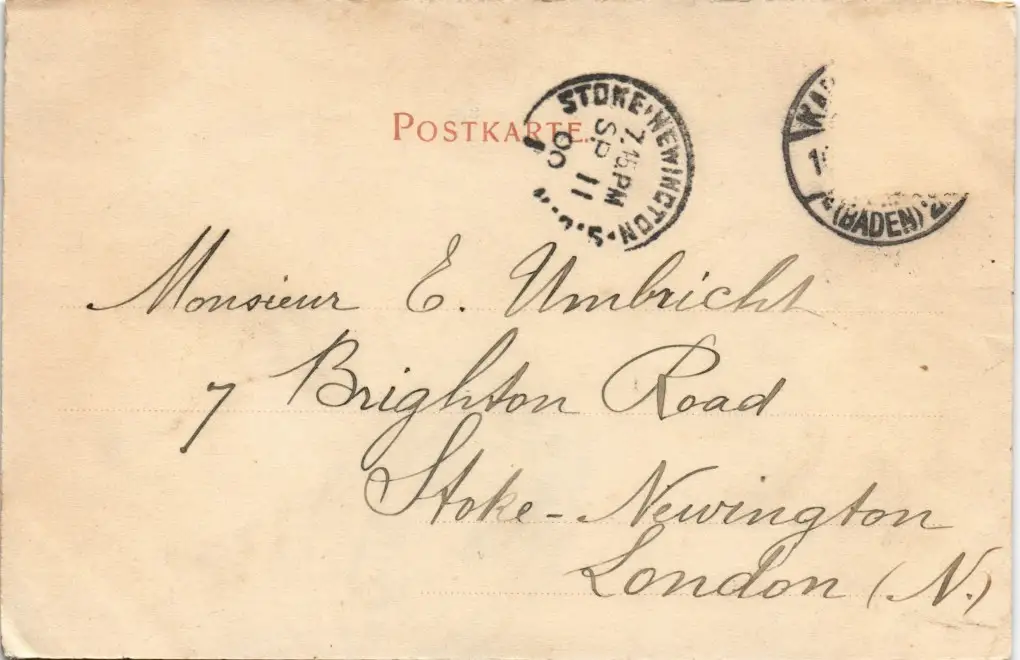 POSTKARTE.
STOKE·NEWINGTON·S.O.·N
7.15 PM
SP 11
00
(BADEN)
Monsieur E. Umbricht
7 Brighton Road
Stoke-Newington
London (N.)